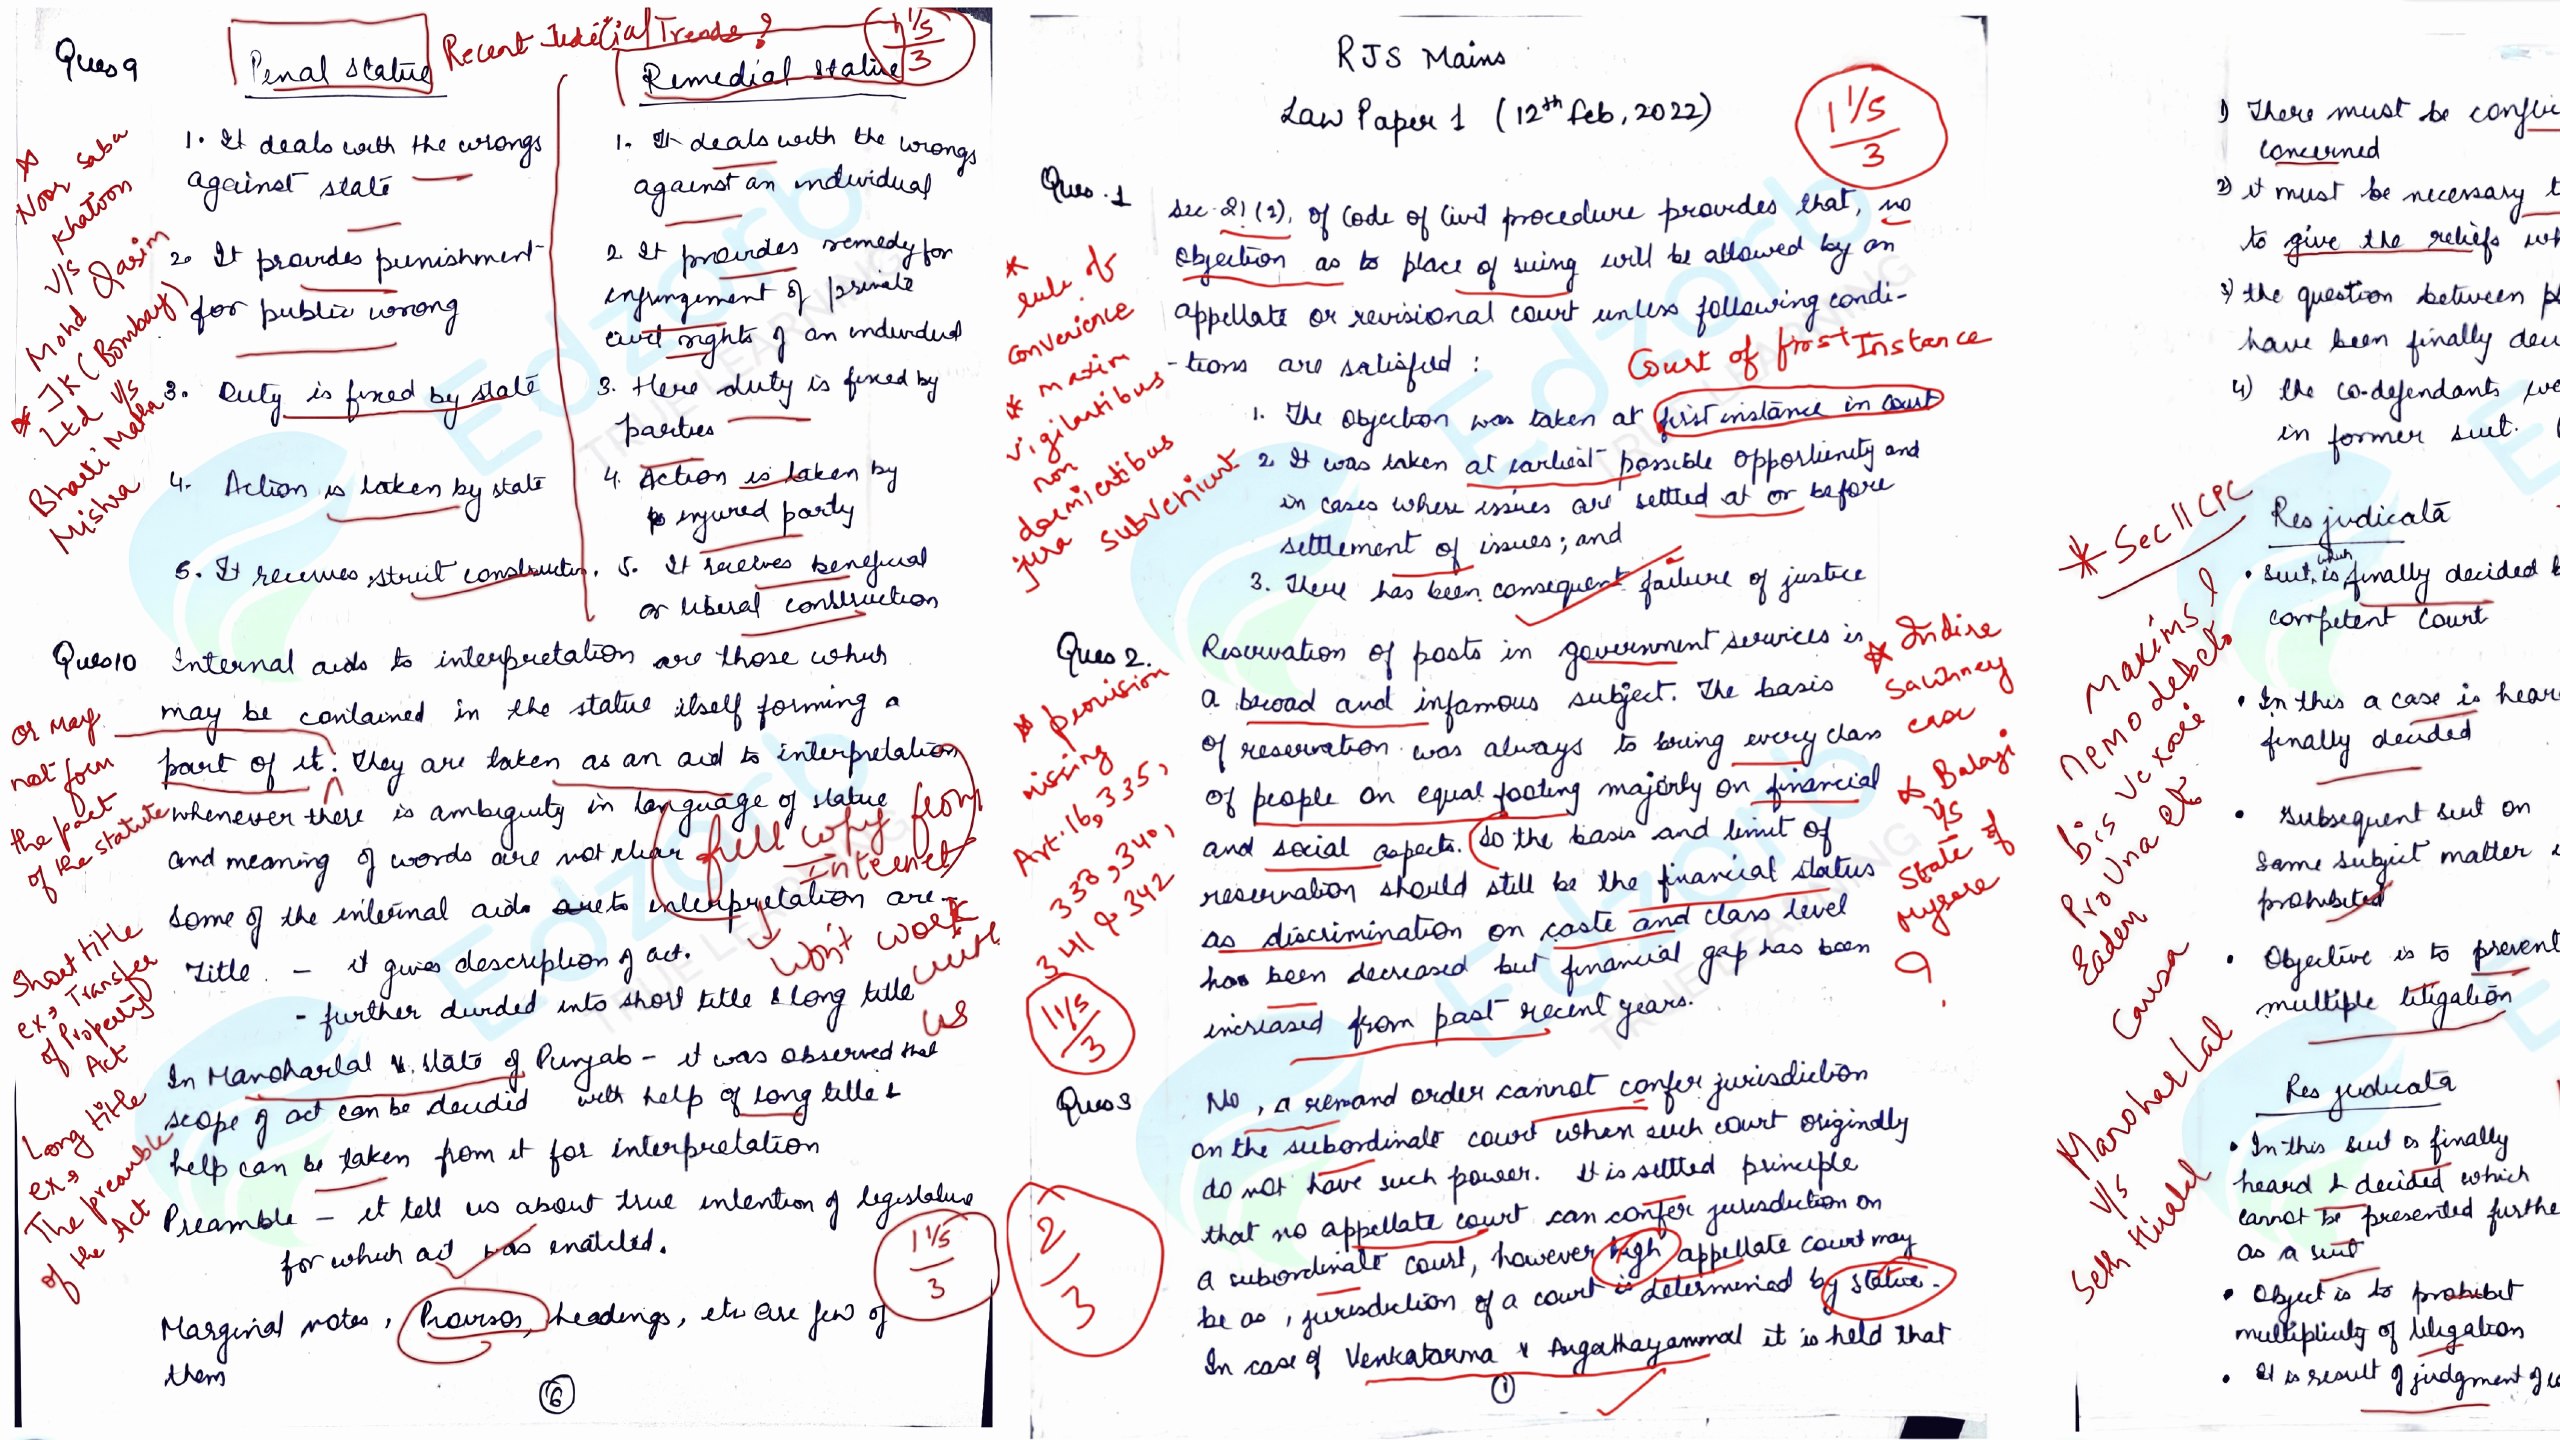 Recent Judicial Trends?
1 1/5
3
Ques 9
Penal statue
Remedial statue
1. It deals with the wrongs
against state
2. It provides punishment
for public wrong
3. Duty is fixed by state
4. Action is taken by state
5. It receives strict construction.
1. It deals with the wrongs
against an individual
2. It provides remedy for
infringement of private
civil rights of an individual
3. Here duty is fixed by
parties
4. Action is taken by
injured party
5. It receives beneficial
or liberal construction
Noor Saba
Khatoon
v/s
Mohd Qasim
JK (Bombay)
Ltd v/s
Bharti Matha
Mishra
Ques 10 Internal aids to interpretation are those which
may be contained in the statue itself forming a
part of it. They are taken as an aid to interpretation
whenever there is ambiguity in language of statue
and meaning of words are not clear
Some of the internal aids to interpretation are-
Title - it gives description of act.
- further divided into short title & long title
In Manoharlal v. State of Punjab - it was observed that
scope of act can be decided with help of long title &
help can be taken from it for interpretation
Preamble - it tell us about true intention of legislature
for which act was enacted.
Marginal notes, Provisos, headings, etc are few of
them
or may
not form
the part
of the statute
full copy from
Internet
Won't work
with
us
Short title
ex, Transfer
of Property
Act
Long title
ex,
The preamble
of the Act
1 1/5
3
6
RJS Mains
Law Paper 1 (12th Feb, 2022)
1 1/5
3
Ques.1
Sec-21(2), of Code of Civil procedure provides that, no
objection as to place of suing will be allowed by an
appellate or revisional court unless following condi-
-tions are satisfied :
Court of first Instance
1. The objection was taken at first instance in court
2. It was taken at earliest possible opportunity and
in cases where issues are settled at or before
settlement of issues; and
3. There has been consequent failure of justice
* rule of
convenience
* maxim
vigilantibus
non
dormientibus
jura subveniunt
Ques 2.
Reservation of posts in government services is
a broad and infamous subject. The basis
of reservation was always to bring every class
of people on equal footing majorly on financial
and social aspects. So the basis and limit of
reservation should still be the financial status
as discrimination on caste and class level
has been decreased but financial gap has been
increased from past recent years.
provision
missing
Art. 16, 335,
338, 340,
341 & 342
1 1/5
3
Indira
Sawhney
case
Balaji
v/s
State of
Mysore
?
Ques 3
No, a remand order cannot confer jurisdiction
on the subordinate court when such court originally
do not have such power. It is settled principle
that no appellate court can confer jurisdiction on
a subordinate court, however high appellate court may
be as, jurisdiction of a court is determined by statue.
In case of Venkatarma v Angathayammal it is held that
2
3
1
1) There must be
concerned
2) it must be necessary
to give the reliefs
3) the question between
have been finally
4) the co-defendants
in former suit.
* Sec 11 CPC
Maxims
nemo debet
bis vexari
Pro Una et
Eadem
Causa
Manohar Lal
v/s
Seth Hiralal
Res judicata
• Suit which is finally decided
competent court
• In this a case is
finally decided
• Subsequent suit on
same subject matter
prohibited
• Objective is to prevent
multiple litigation
Res judicata
• In this suit is finally
heard & decided which
cannot be presented
as a suit
• Object is to prohibit
multiplicity of litigation
• It is result of judgment of
Edzorb
TRUE LEARNING